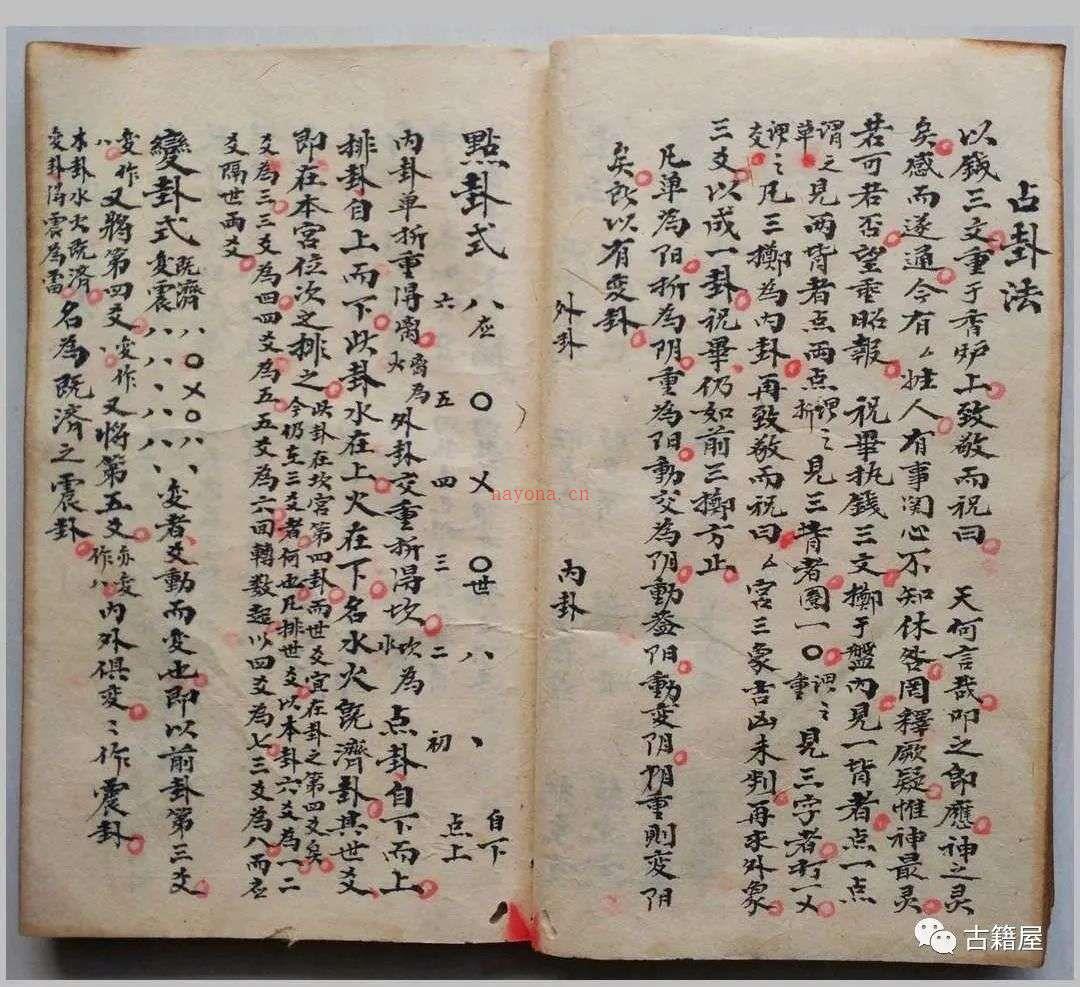 占卦法
以錢三文重于香炉上致敬而祝曰 天何言哉叩之即應神之灵
矣感而遂通今有厶姓人有事関心不知休咎罔釋厥疑惟神最灵
若可若否望垂昭報 祝畢执錢三文擲于盤內見一背者点一点
謂之單見兩背者点兩点謂之折見三背者圈一〇謂之重見三字者打一乂
謂之交凡三擲為內卦再致敬而祝曰厶宮三象吉凶未判再求外象
三爻以成一卦祝畢仍如前三擲方止
凡單為阳折為阴重為阳動交為阴動盖阳動变阴 重則变阴
矣所以有变卦
外卦 內卦
點卦式 八应 〇 乂 〇世 八 、 自下点上
六 五 四 三 二 初
內卦單折重得离离為火外卦交重折得坎坎為水点卦自下而上
排卦自上而下此卦水在上火在下名水火既濟卦其世爻
即在本宮位次之排之此卦在坎宮第四卦而世爻宜在卦之第四爻矣今仍在三爻者何也凡排世爻以本卦六爻為一二
爻為三三爻為四四爻為五五爻為六回轉数起以四爻為七三爻為八而应
爻隔世两爻
變卦式 既濟变震 八〇乂〇八、 八八、八八、 变者爻動而变也即以前卦第三爻
变作八又將第四爻变作、又將第五爻亦变作八內外俱变〻作震卦
本卦水火既濟变卦得震為雷名為既濟之震卦
nayona.cn
古籍屋